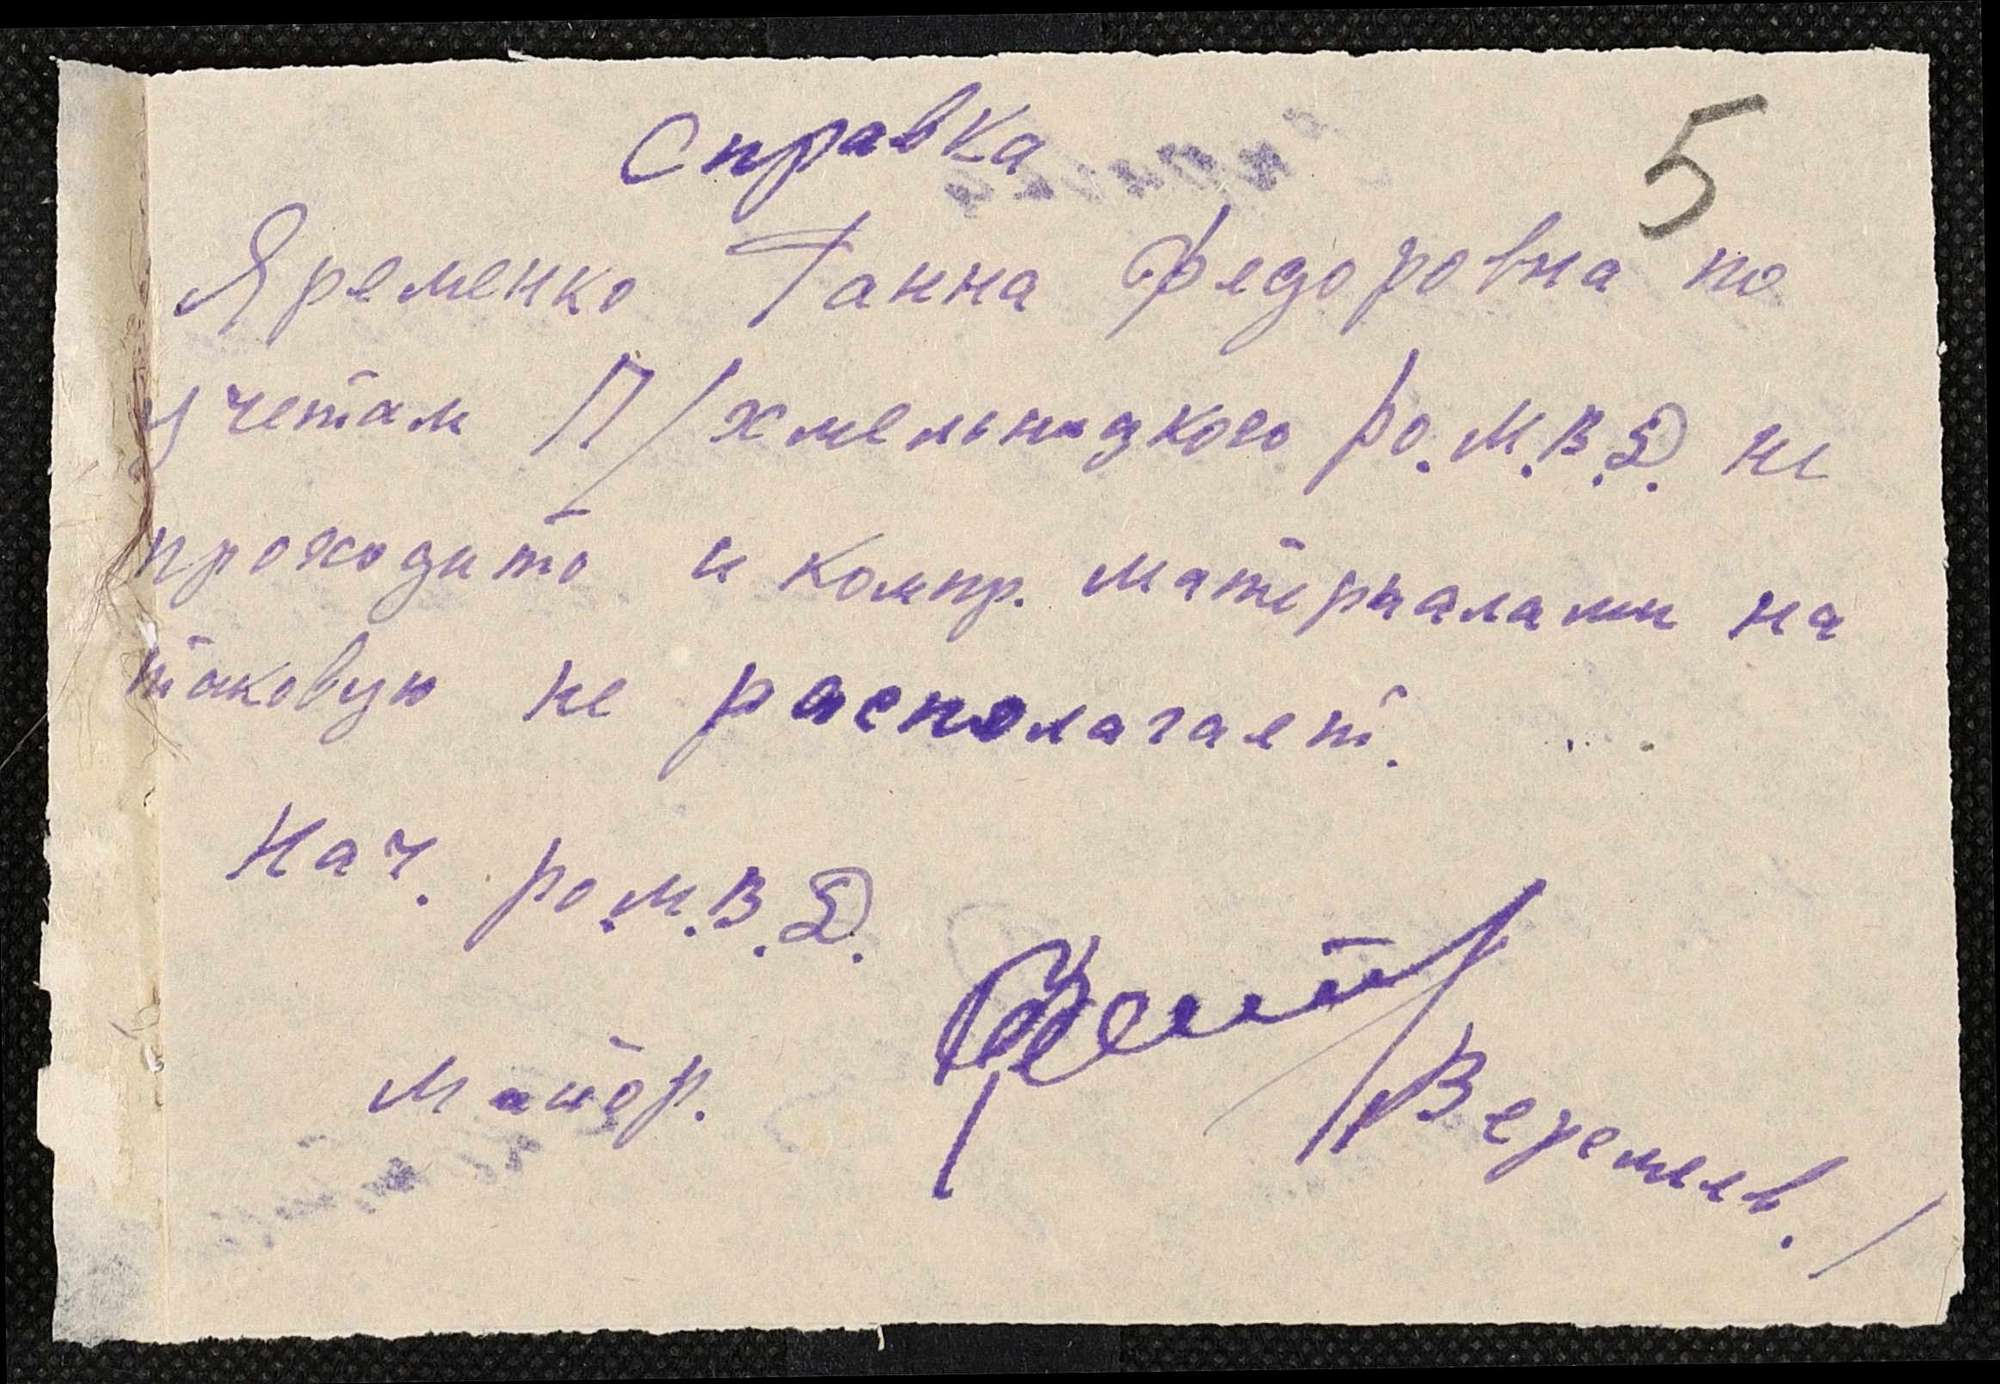 Справка
5
Яременко Ганна Федоровна по
учетам П/хмельницкого ро.М.В.Д. не
проходито и компр. материалами на
таковую не располагает.
Нач. ро.М.В.Д.
Майор.
/Веремеев./